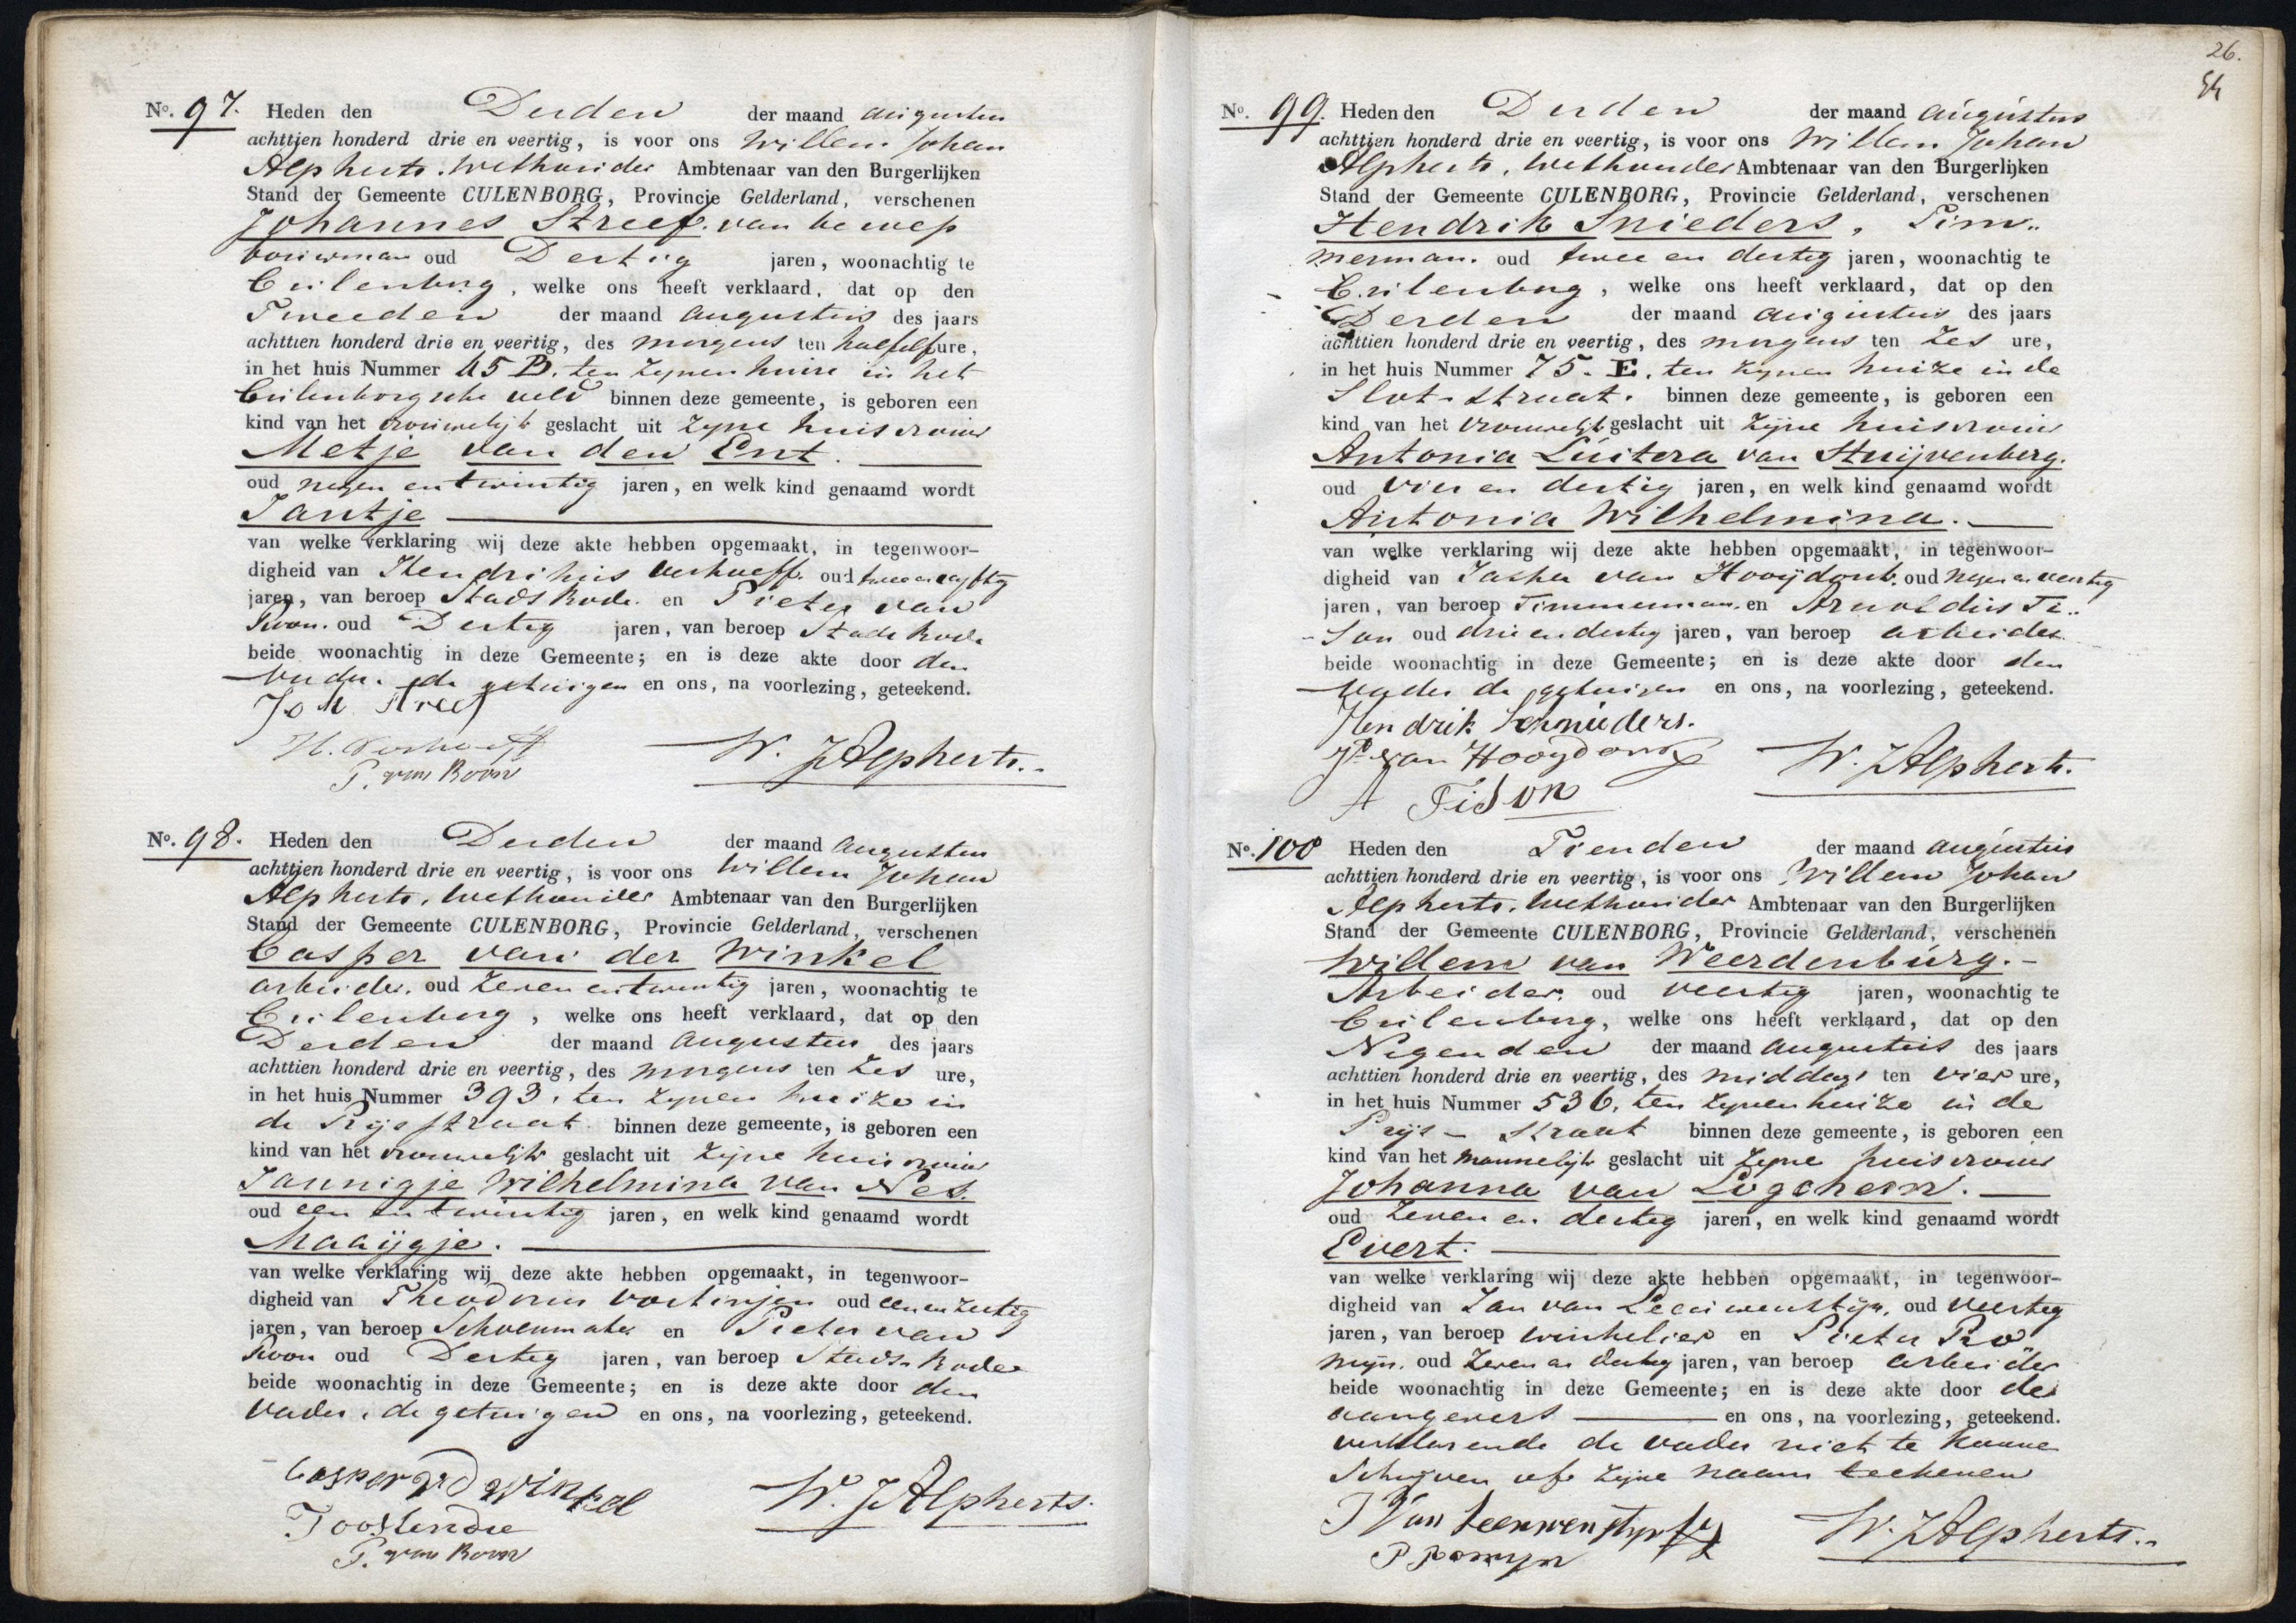 No. 97. Heden den Derden der maand augustus
achttien honderd drie en veertig, is voor ons Willem Johan
Alpherts. Wethouder Ambtenaar van den Burgerlijken
Stand der Gemeente CULENBORG, Provincie Gelderland, verschenen
Johannes Streef. van beroep
bouwman oud Dertig jaren, woonachtig te
Cuilenborg, welke ons heeft verklaard, dat op den
Tweeden der maand augustus des jaars
achttien honderd drie en veertig, des morgens ten half elf ure,
in het huis Nummer 45 B. ten zynen huize in het
Cuilenborgsche veld binnen deze gemeente, is geboren een
kind van het vrouwelijk geslacht uit zyne huisvrouw
Metje van den Ent.
oud negen en twintig jaren, en welk kind genaamd wordt
Jantje
van welke verklaring wij deze akte hebben opgemaakt, in tegenwoor-
digheid van Hendrikus Verhoeff. oud twee en vyftig
jaren, van beroep Stads Bode. en Pieter van
Roon. oud Dertig jaren, van beroep Stads Bode
beide woonachtig in deze Gemeente; en is deze akte door den
Vader. de getuigen en ons, na voorlezing, geteekend.
Joh Streef
H. Verhoeff W. J Alpherts.
P. van Roon
No. 98. Heden den Derden der maand Augustus
achttien honderd drie en veertig, is voor ons Willem Johan
Alpherts, Wethouder Ambtenaar van den Burgerlijken
Stand der Gemeente CULENBORG, Provincie Gelderland, verschenen
Casper van der Winkel
arbeider. oud zeven en twintig jaren, woonachtig te
Cuilenborg, welke ons heeft verklaard, dat op den
Derden der maand Augustus des jaars
achttien honderd drie en veertig, des morgens ten zes ure,
in het huis Nummer 393. ten zynen huize in
de Prysstraat binnen deze gemeente, is geboren een
kind van het vrouwelijk geslacht uit zyne huisvrouw
Jannigje Wilhelmina van Nes.
oud een en twintig jaren, en welk kind genaamd wordt
Maaijgje.
van welke verklaring wij deze akte hebben opgemaakt, in tegenwoor-
digheid van Theodorus oud een en zestig
jaren, van beroep Schoenmaker en Pieter van
Roon oud Dertig jaren, van beroep Stads Bode
beide woonachtig in deze Gemeente; en is deze akte door den
Vader, de getuigen en ons, na voorlezing, geteekend.
Casper vd Winkel W. J Alpherts.
P. van Roon
26.
No. 99. Heden den Derden der maand augustus
achttien honderd drie en veertig, is voor ons Willem Johan
Alpherts, Wethouder Ambtenaar van den Burgerlijken
Stand der Gemeente CULENBORG, Provincie Gelderland, verschenen
Hendrik Snieders, Tim..
merman. oud twee en dertig jaren, woonachtig te
Cuilenborg, welke ons heeft verklaard, dat op den
Derden der maand augustus des jaars
achttien honderd drie en veertig, des morgens ten zes ure,
in het huis Nummer 75. E. ten zynen huize in de
Slot-straat. binnen deze gemeente, is geboren een
kind van het vrouwelijk geslacht uit zijne huisvrouw
Antonia Luitera van Stuijvenberg.
oud vier en dertig jaren, en welk kind genaamd wordt
Antonia Wilhelmina.
van welke verklaring wij deze akte hebben opgemaakt, in tegenwoor-
digheid van Jasper van Hooijdonk. oud negen en veertig
jaren, van beroep Timmerman. en Arnoldus Ti..
son oud drie en dertig jaren, van beroep arbeider.
beide woonachtig in deze Gemeente; en is deze akte door den
Vader de getuigen en ons, na voorlezing, geteekend.
Hendrik Schnieders.
Jr van Hooydonk W. J Alpherts.
A Tison
No. 100 Heden den Tienden der maand augustus
achttien honderd drie en veertig, is voor ons Willem Johan
Alpherts. Wethouder Ambtenaar van den Burgerlijken
Stand der Gemeente CULENBORG, Provincie Gelderland, verschenen
Willem van Weerdenburg.-
Arbeider. oud veertig jaren, woonachtig te
Cuilenborg, welke ons heeft verklaard, dat op den
Negenden der maand augustus des jaars
achttien honderd drie en veertig, des middags ten vier ure,
in het huis Nummer 536. ten zynen huize in de
Prijs-straat binnen deze gemeente, is geboren een
kind van het mannelijk geslacht uit zyne huisvrouw
Johanna van Logchem.
oud zeven en dertig jaren, en welk kind genaamd wordt
Evert.
van welke verklaring wij deze akte hebben opgemaakt, in tegenwoor-
digheid van Jan van Leeuwenstijn. oud veertig
jaren, van beroep winkelier en Pieter Ro
mijn. oud zeven en dertig jaren, van beroep arbeider
beide woonachtig in deze Gemeente; en is deze akte door de
aangevers en ons, na voorlezing, geteekend.
verklarende de vader niet te kunne
schryven of zyne naam teekenen
J Van Leeuwenstyn W. J Alpherts..
P Romyn